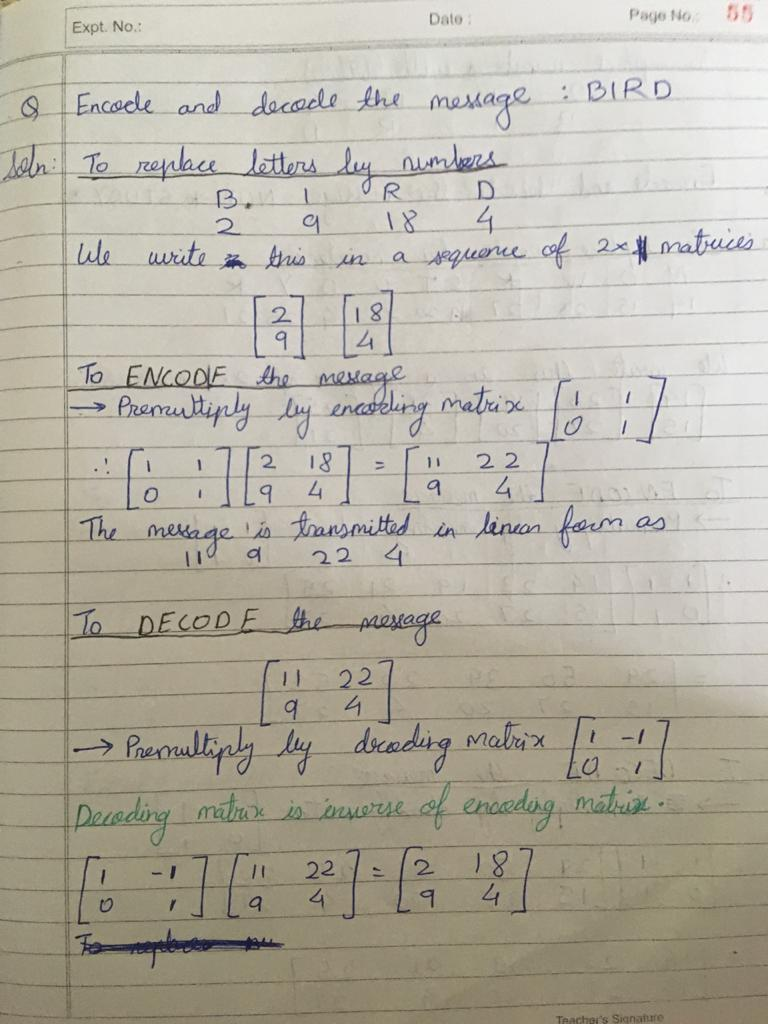 Expt. No.: Date : Page No.: 55
Q Encode and decode the message : BIRD
Soln: To replace letters by numbers
B. I R D
2 9 18 4
We write this in a sequence of 2x1 matrices
[2 [18
9] 4]
To ENCODE the message
→ Premultiply by encoding matrix [1 1
0 1]
∴ [1 1 [2 18 = [11 22
0 1] 9 4] 9 4]
The message is transmitted in linear form as
11 9 22 4
To DECODE the message
[11 22
9 4]
→ Premultiply by decoding matrix [1 -1
0 1]
Decoding matrix is inverse of encoding matrix.
[1 -1 [11 22 = [2 18
0 1] 9 4] 9 4]
Teacher's Signature